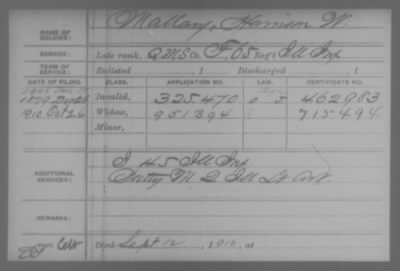 NAME OF SOLDIER: Mallary, Harrison W.
SERVICE: Late rank, Q.M.S. Co. F, 65 Reg't Ill Inf.
TERM OF SERVICE: Enlisted 1 Discharged , 1
DATE OF FILING. CLASS. APPLICATION NO. LAW. CERTIFICATE NO.
1879 Dec 26 Invalid, 325470 462983
1910 Oct 26 Widow, 951894 715494
Minor,
ADDITIONAL SERVICES: I 45 Ill Inf
Batty M 2 Ill Lt Art.
REMARKS:
Died Sept 12, 1910, at